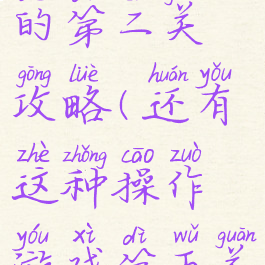 的第二关
gōng lüè huán yǒu
攻略(还有
zhè zhǒng cāo zuò
这种操作
yóu xì dì wǔ guān